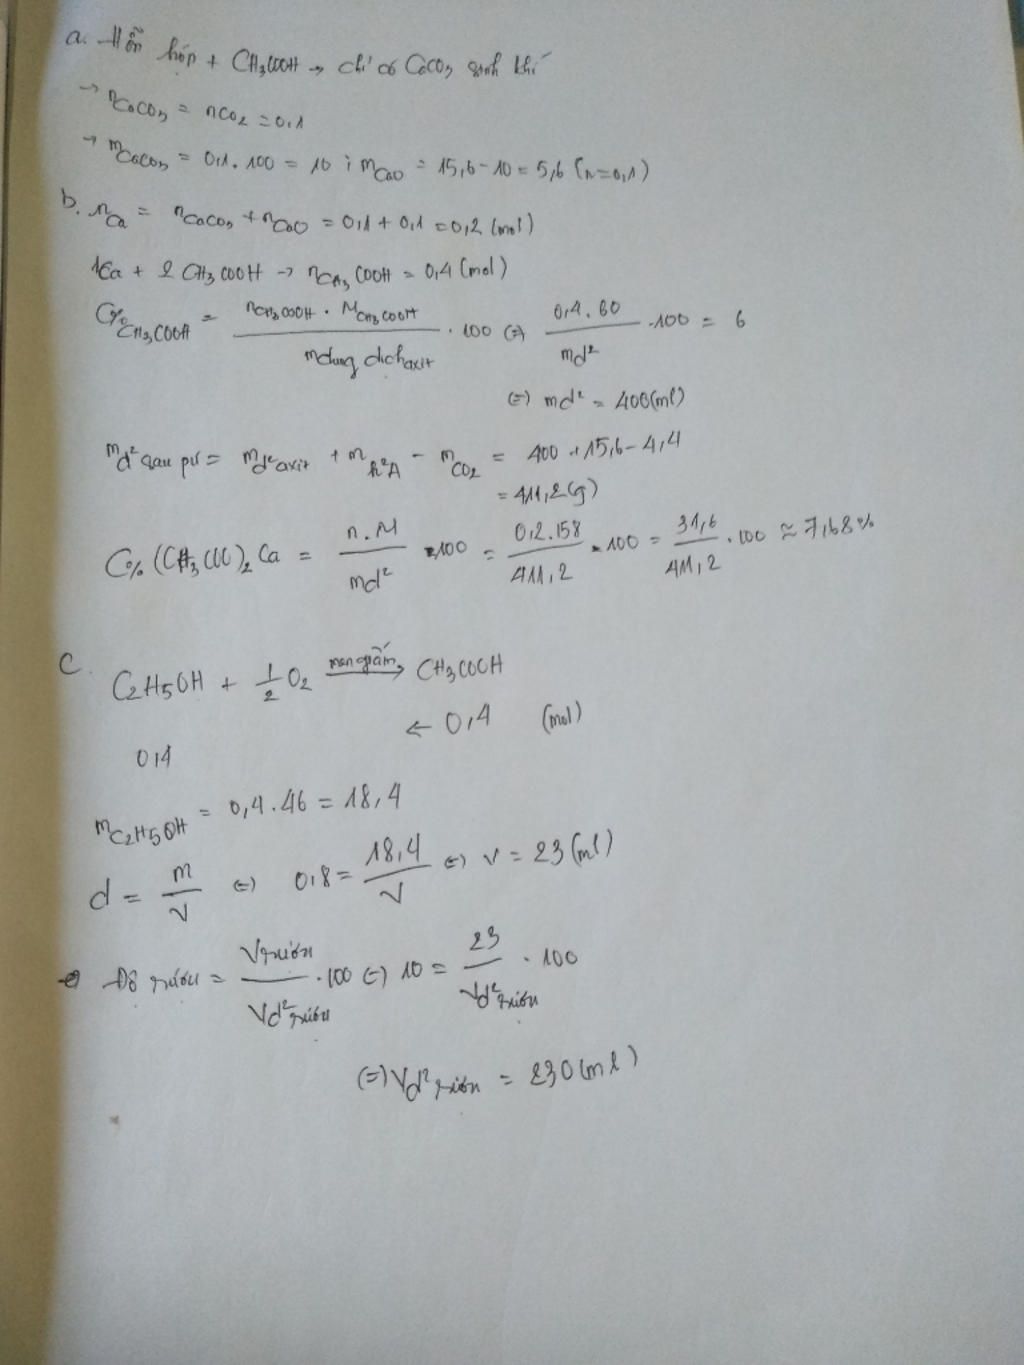 a. Hỗn hợp + CH3COOH → chỉ có CaCO3 sinh khí
→ nCaCO3 = nCO2 = 0,1
→ mCaCO3 = 0,1.100 = 10 ; mCaO = 15,6-10 = 5,6 (n=0,1)
b. nCa = nCaCO3 + nCaO = 0,1 + 0,1 = 0,2 (mol)
1Ca + 2 CH3COOH → nCH3COOH = 0,4 (mol)
C%CH3COOH = nCH3COOH . MCH3COOH / mdung dịch axit . 100 (=) 0,4.60 / md² .100 = 6
(=) md² = 400(ml)
md² sau pư = md² axit + m h²A - mCO2 = 400 + 15,6 - 4,4
= 411,2 (g)
C% (CH3COO)2 Ca = n.M / md² .100 = 0,2.158 / 411,2 .100 = 31,6 / 411,2 .100 ≈ 7,68%
C. C2H5OH + 1/2 O2 men giấm → CH3COOH
0,4 ← 0,4 (mol)
mC2H5OH = 0,4.46 = 18,4
d = m / V (=) 0,8 = 18,4 / V (=) V = 23 (ml)
Độ rượu = Vrượu / Vd² rượu .100 (=) 10 = 23 / Vd² rượu . 100
(=) Vd² rượu = 230 (ml)